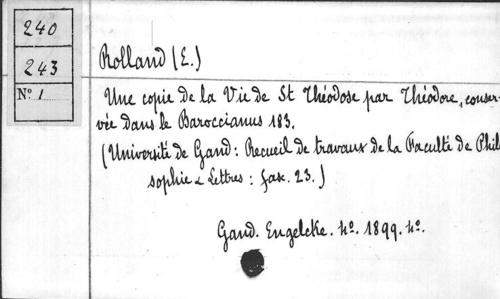 240
243
N° 1
Rolland (E.)
Une copie de la Vie de St Théodose par Théodore, conser-
vée dans le Baroccianus 183.
(Université de Gand: Recueil de travaux de la Faculté de Phil
sophie & Lettres : fasc. 23.)
Gand. Engelcke. 4°. 1899. 4°.